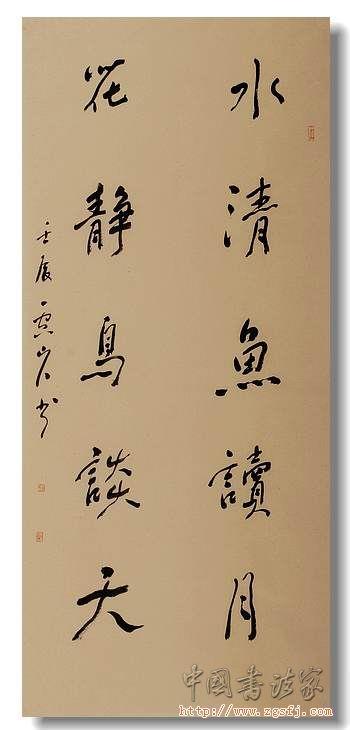 水清魚讀月
花静鳥談天
壬辰
書
中國書法家
http://www.zgsfj.com